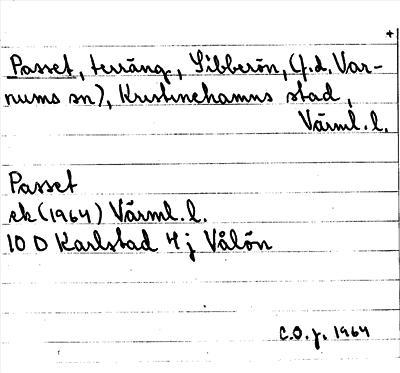 +
Passet, terräng, Sibberön, (f.d. Var-
nums sn), Kristinehamns stad,
Värml. l.
Passet
ek (1964) Värml. l.
10 D Karlstad 4 j Vålön
C.O.J. 1964